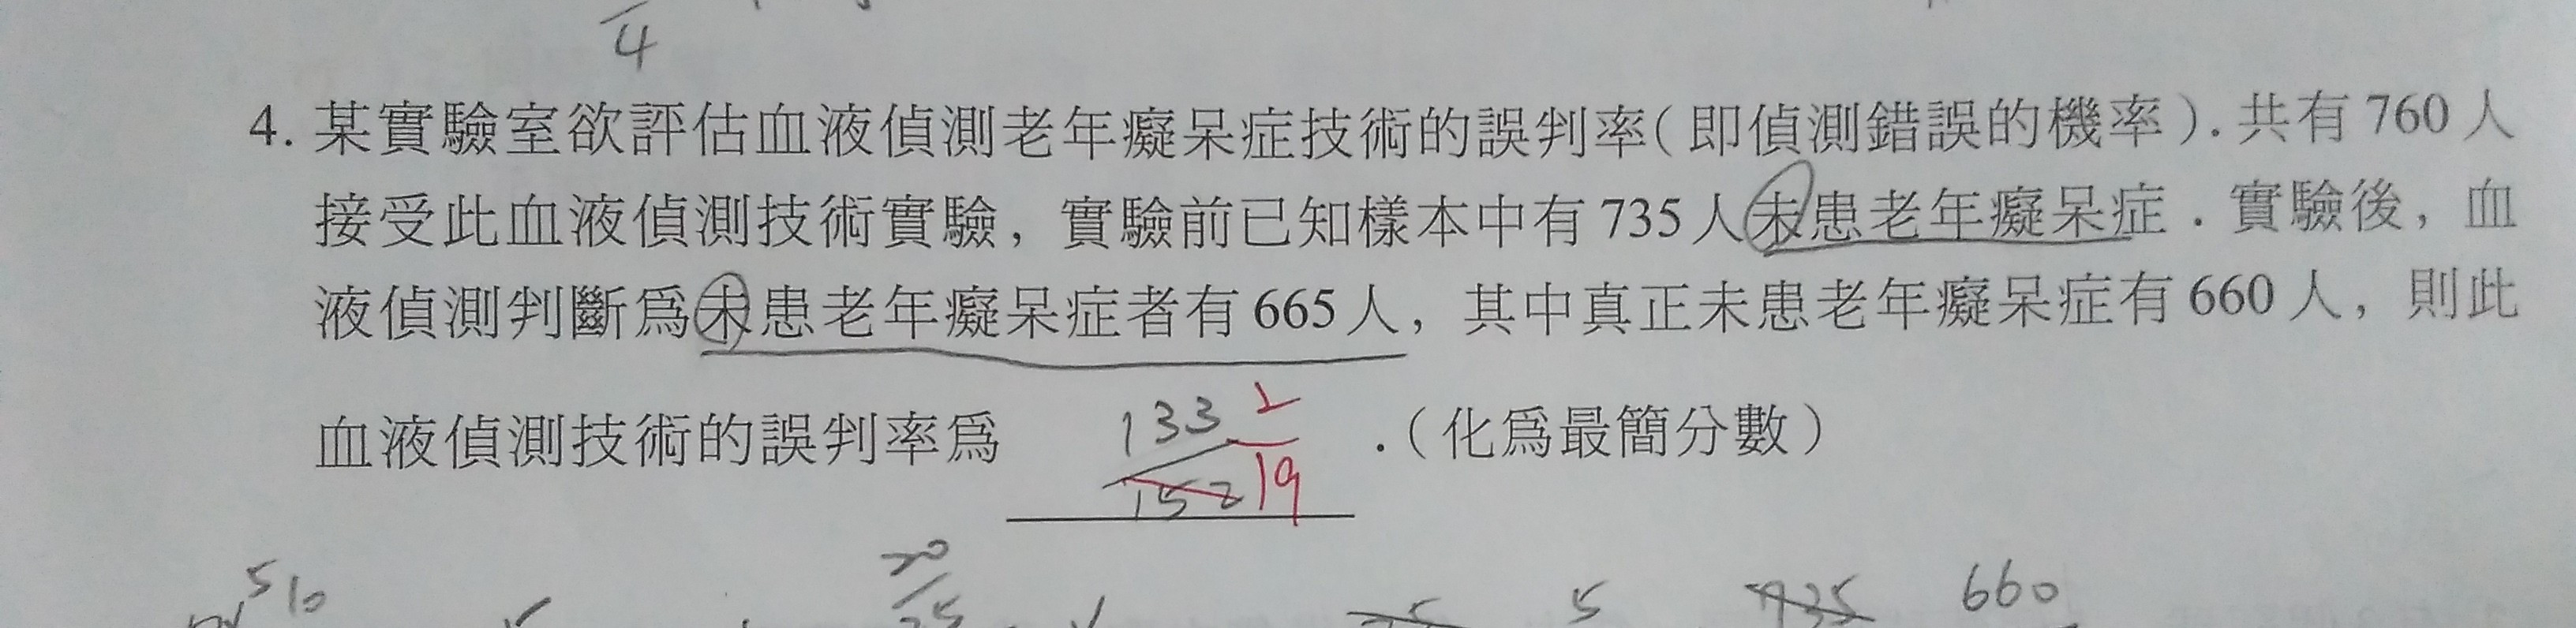 4
4. 某實驗室欲評估血液偵測老年癡呆症技術的誤判率(即偵測錯誤的機率). 共有 760 人
接受此血液偵測技術實驗, 實驗前已知樣本中有 735 人未患老年癡呆症. 實驗後, 血
液偵測判斷爲未患老年癡呆症者有 665 人, 其中真正未患老年癡呆症有 660 人, 則此
血液偵測技術的誤判率爲 133/152 2/19 .(化爲最簡分數)
5 10 20 5 735 660